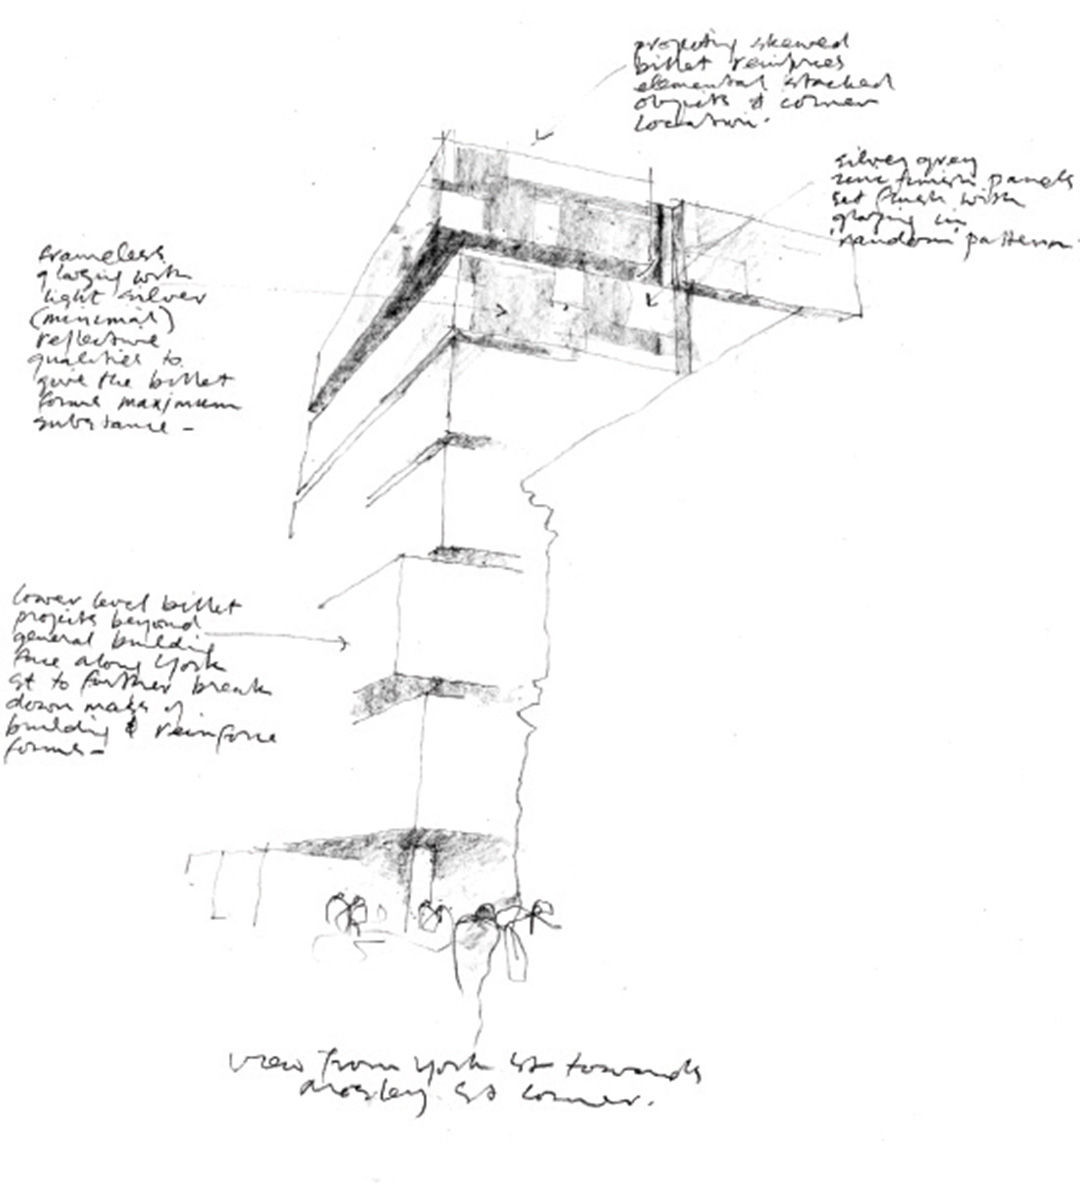 projecting skewed
billet reinforces
elemental stacked
objects & corner
location.
silver grey
zinc finish panels
set flush with
glazing in
'random' pattern.
frameless
glazing with
light silver
(minimal)
reflective
qualities to
give the billet
forms maximum
substance –
lower level billet
projects beyond
general building
face along York
St to further break
down mass of
building & reinforce
forms –
view from York St towards
Mosley St corner.